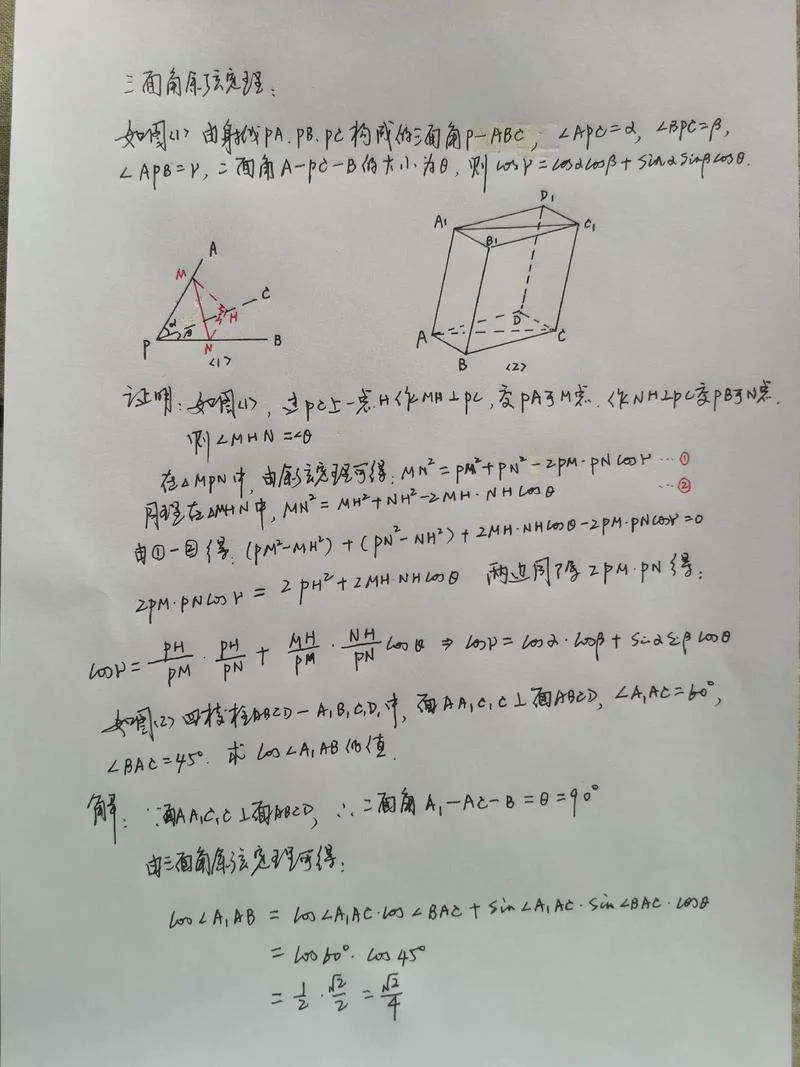 三面角余弦定理：
如图<1> 由射线PA、PB、PC构成的三面角P-ABC，∠APC=α，∠BPC=β，
∠APB=γ，二面角A-PC-B的大小为θ，则cosγ=cosαcosβ+sinαsinβcosθ.
A
M
C
α
β
H
P
N
B
<1>
D₁
A₁
B₁
C₁
D
A
C
B
<2>
证明：如图<1>，过PC上一点H作MH⊥PC，交PA于M点，作NH⊥PC交PB于N点.
则∠MHN=∠θ
在△MPN中，由余弦定理可得：MN²=PM²+PN²-2PM·PNcosγ ···①
同理在△MHN中，MN²=MH²+NH²-2MH·NHcosθ ···②
由①-②得：(PM²-MH²)+(PN²-NH²)+2MH·NHcosθ-2PM·PNcosγ=0
2PM·PNcosγ=2PH²+2MH·NHcosθ 两边同除2PM·PN得：
cosγ=PH/PM·PH/PN+MH/PM·NH/PNcosθ⇒cosγ=cosα·cosβ+sinα·sinβcosθ
如图<2>四棱柱ABCD-A₁B₁C₁D₁中，面AA₁C₁C⊥面ABCD，∠A₁AC=60°，
∠BAC=45°. 求cos∠A₁AB的值.
解：∵面AA₁C₁C⊥面ABCD，∴二面角A₁-AC-B=θ=90°
由三面角余弦定理可得：
cos∠A₁AB=cos∠A₁AC·cos∠BAC+sin∠A₁AC·sin∠BAC·cosθ
=cos60°·cos45°
=1/2·√2/2=√2/4